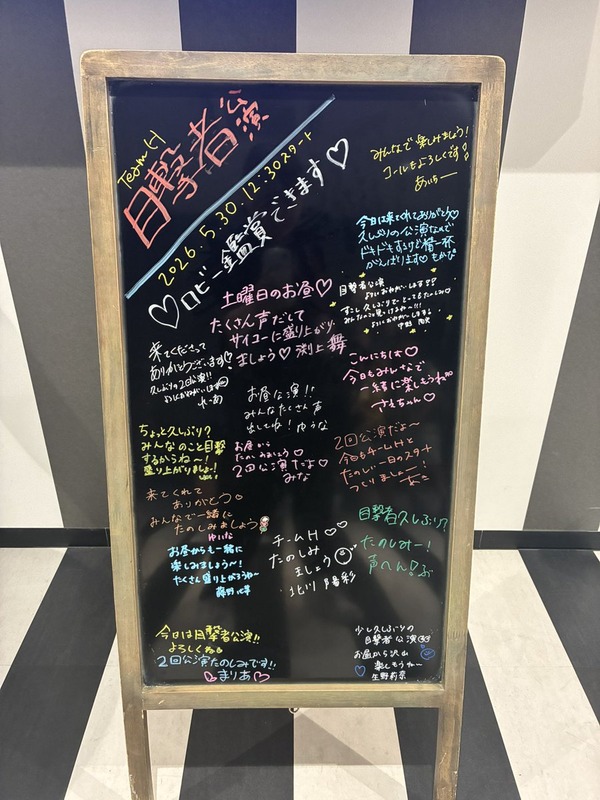 Team H
目撃者公演
2026.5.30.12:30スタート
♡ロビー鑑賞できます♡
みんなで楽しみましょう!
コールもよろしくです!
あいちー
今日は来てくれてありがとう♡
久しぶりの公演なので
ドキドキするけど精一杯
がんばります♡もかな
土曜日のお昼♡
たくさん声だして
サイコーに盛り上がり
ましょう♡渕上舞
目撃者公演
よろしくおねがいします
すこし久しぶりでとってもたのしみ♡
来てくださって
ありがとうございます!
久しぶりの2回公演!!
よろしくおねがいします
れーあ
こんにちは♡
今日もみんなで
一緒に楽しもうね
さえちゃん♡
お昼公演!!
みんなたくさん声
出しちゃお!ゆうな
ちょっと久しぶり?
みんなのこと目撃
するからね〜!
盛り上がりましょー!
お昼から
たのしみましょう♡
2回公演だよ♡
みな
2回公演だよ〜
今日もチームHと
たのしい一日のスタート
つくりましょー!
来てくれて
ありがとう♡
みんなで一緒に
たのしみましょう
ゆいな
お昼からも一緒に
楽しみましょう〜!
たくさん盛り上がろうね〜
藤野心葉
チームH♡♡
たのしみ
ましょう
北川陽彩
目撃者久しぶり?
たのしみー!
声へん!ぶ
今日は目撃者公演!!
よろしくね
2回公演たのしみです!!
♡まりあ♡
少し久しぶりの
目撃者公演
お昼から沢山
楽しもうねー
生野莉奈